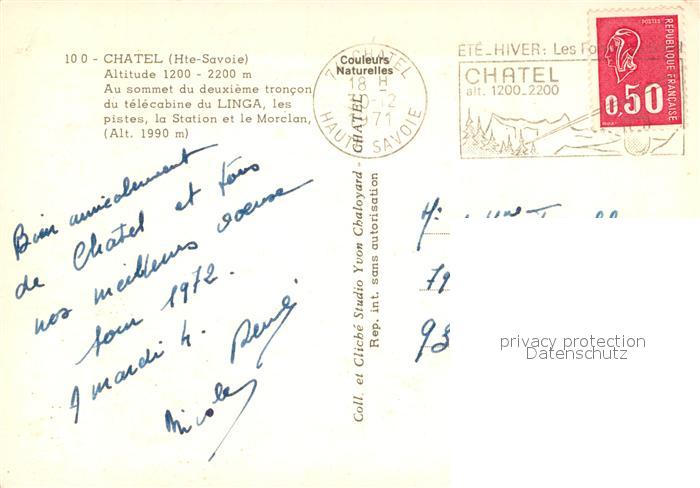 10 0 - CHATEL (Hte-Savoie)
Altitude 1200 - 2200 m
Au sommet du deuxième tronçon
du télécabine du LINGA, les
pistes, la Station et le Morclan,
(Alt. 1990 m)
Couleurs
Naturelles
74 CHATEL
18 H
30-12
1971
HAUTE SAVOIE
ÉTÉ_HIVER: Les
CHATEL
alt. 1200_2200
POSTES
REPUBLIQUE FRANÇAISE
0,50
Bien amicalement
de Chatel et tous
nos meilleurs voeux
pour 1972.
A mardi 4.
Nicole René
Coll. et Cliché Studio Yvon Chaloyard - CHATEL
Rep. int. sans autorisation
79
93
privacy protection
Datenschutz